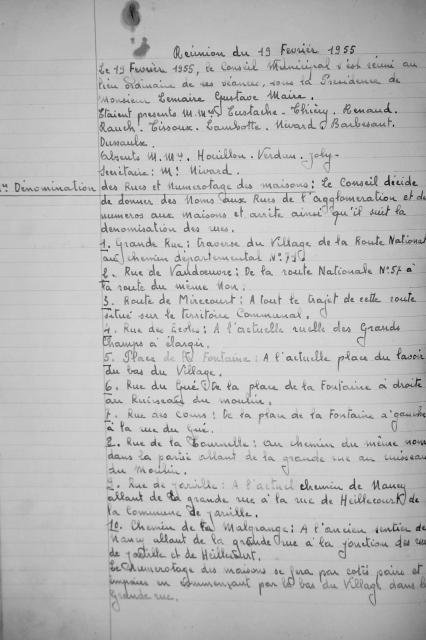 Réunion du 19 Fevrier 1955
Le 19 Fevrier 1955, le Conseil Municipal s'est réuni au
lieu ordinaire de ses séances, sous la Présidence de
Monsieur Lemaire Gustave Maire.
Etaient présents M.M. Eustache - Thiéry. Renaud.
Rauch. Tissoux. Lambotte. Nivard & Barbesant.
Absents M.M. Houillon. Verdun. Joly -
Secrétaire : Mr Nivard.
Dénomination des Rues et numerotage des maisons : Le Conseil décide
de donner des Noms aux Rues de l'agglomeration et de
numeros aux Maisons et arrête ainsi qu'il suit la
dénomination des rues.
1. Grande Rue : traverse du Village de la Route National
au chemin départemental N°
2. Rue de Vandoeuvre : De la route Nationale N° 57 à
la route du même Nom.
3. Route de Mirecourt : A tout le trajet de cette route
situé sur le territoire Communal.
4. Rue des Ecoles : A l'actuelle ruelle des Grands
Champs à élargir.
5. Place de la Fontaine : A l'actuelle place du lavoir
du bas du Village.
6. Rue du Gué De la place de la Fontaine à droite
au Ruisseau du moulin.
7. Rue des Cours : De la place de la Fontaine à gauche
à la rue du Gué.
8. Rue de la Tournelle : au chemin du même nom
dans la partie allant de la grande rue au ruisseau
du Moulin.
9. Rue de Jarville : A l'actuel chemin de Nancy
allant de la grande rue à la rue de Heillecourt de
la commune de Jarville.
10. Chemin de la Malgrange : A l'ancien sentier de
Nancy allant de la grande rue à la jonction des rues
de Jarville et de Heillecourt.
Le Numerotage des maisons se fera par coté paire et
impaire en commençant par le bas du Village dans la
Grande rue.